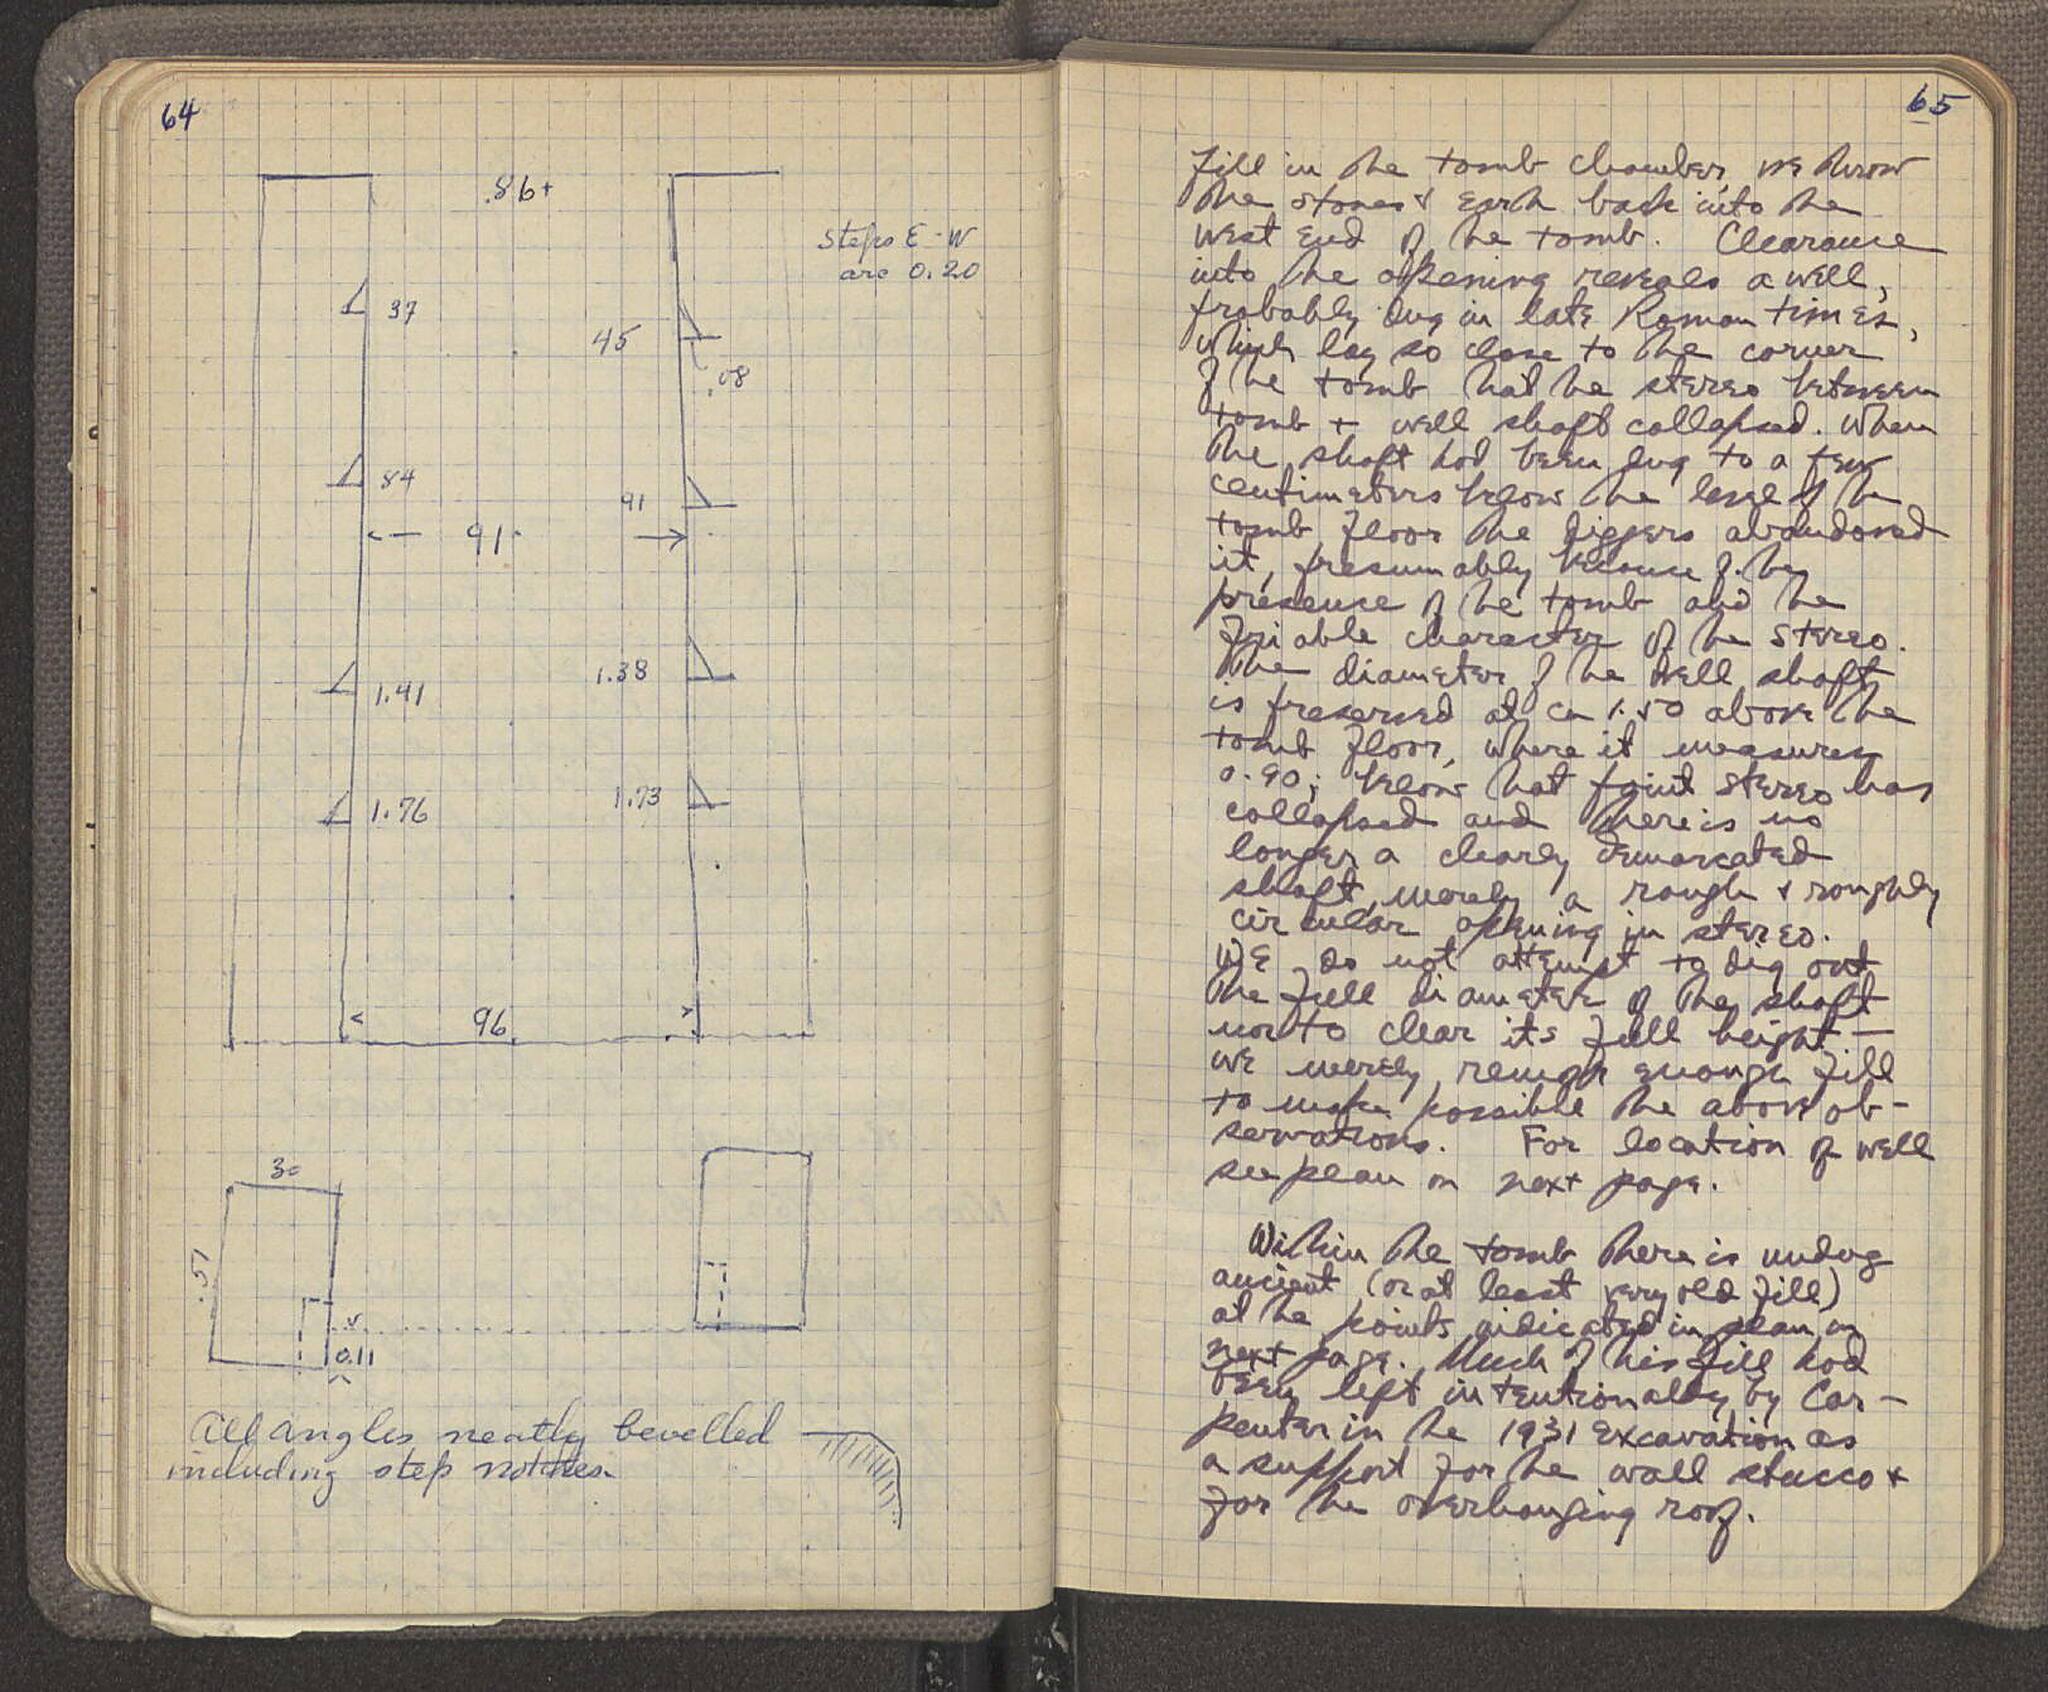 64
.86+
steps E-W
are 0.20
37
45
.08
84
91
91
1.38
1.41
1.73
1.76
96
30
.57
0.11
All angles neatly bevelled
including step notches.
65
fill in the tomb chamber, we throw
the stones & earth back into the
west end of the tomb. Clearance
into the opening reveals a well,
probably dug in late Roman times,
which lay so close to the corner
of the tomb that the stereo between
tomb + well shaft collapsed. When
the shaft had been dug to a few
centimeters below the level of the
tomb floor the diggers abandoned
it, presumably because of the
presence of the tomb and the
friable character of the stereo.
The diameter of the well shaft
is preserved at ca 1.50 above the
tomb floor, where it measures
0.90; below that point stereo has
collapsed and there is no
longer a clearly demarcated
shaft, merely a rough & roughly
circular opening in stereo.
We do not attempt to dig out
the full diameter of the shaft
nor to clear its full height —
we merely remove enough fill
to make possible the above ob-
servations. For location of well
see plan on next page.
Within the tomb there is undug
ancient (or at least very old fill)
at the points indicated in plan on
next page. Much of this fill had
been left intentionally by Car-
penter in the 1931 excavation as
a support for the wall stucco &
for the overhanging roof.